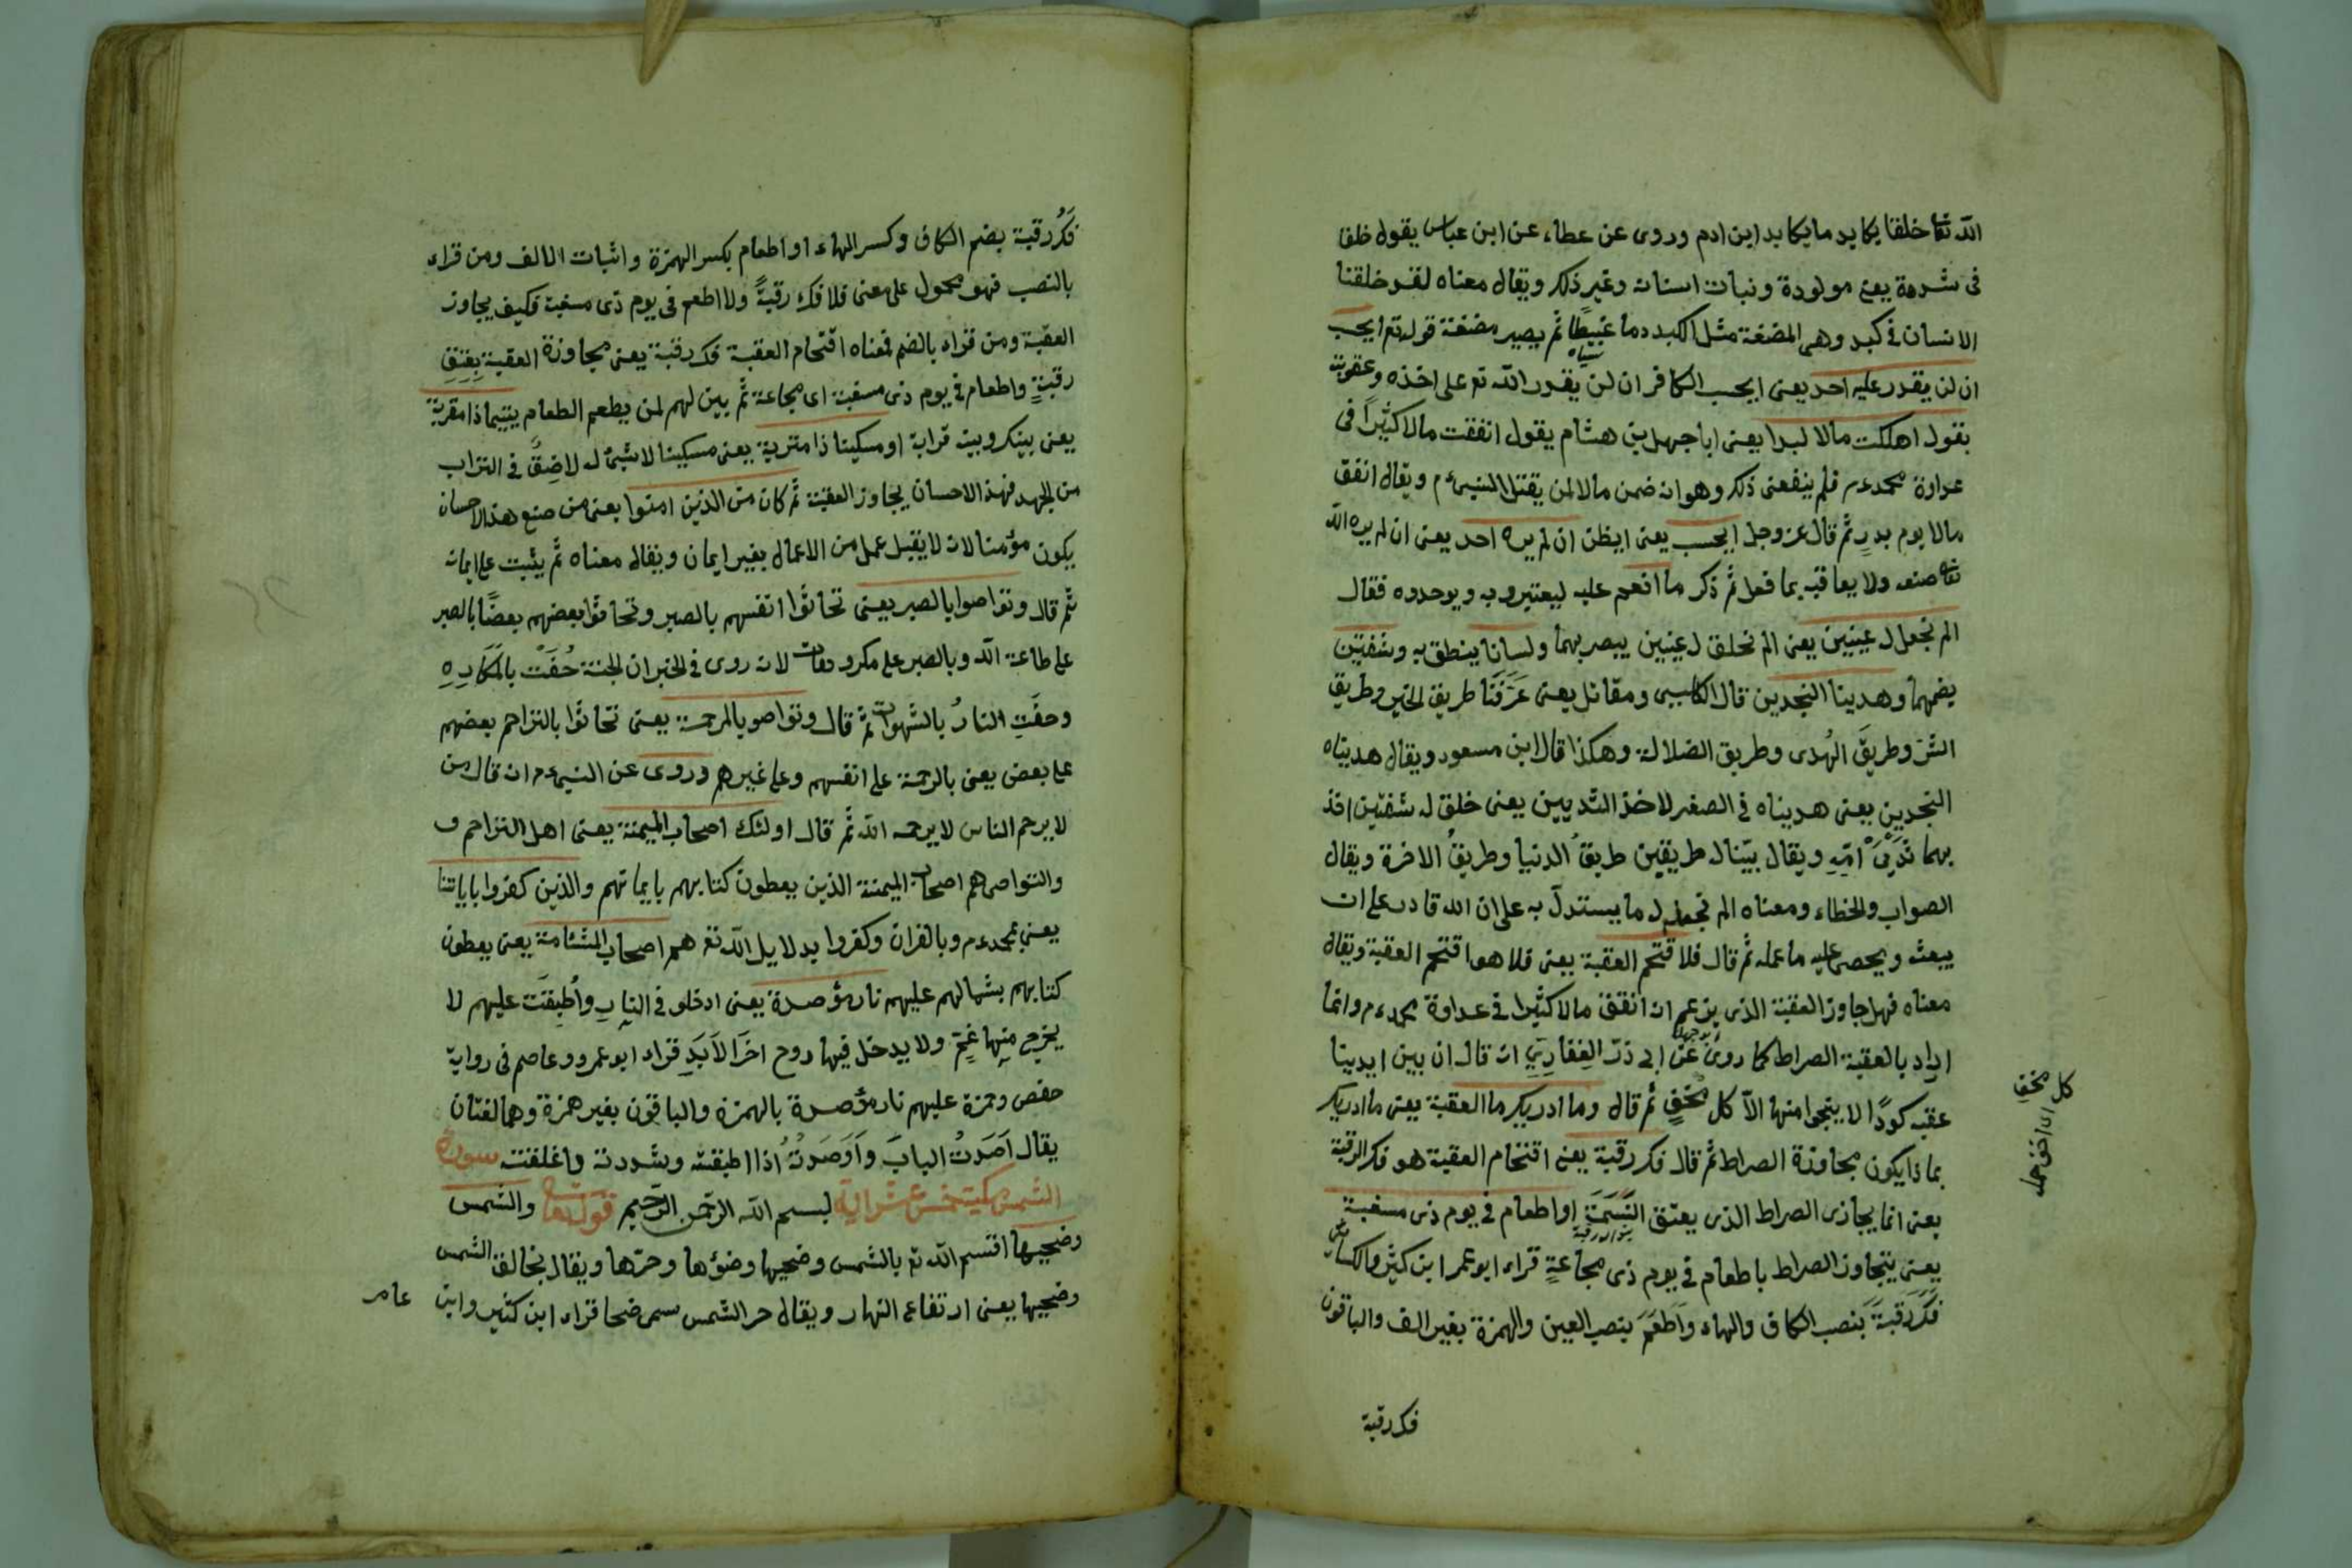 الله تعا خلقا يكابد مايكابد ابن ادم وروى عن عطاء عن ابن عباس يقول خلقا
فى شدة يعنى مولودة ونبات اسنانه وغير ذلك ويقال معناه لقد خلقنا
الانسان فى كبد وهى المضغة مثل الكبد دما غبيطا ثم يصير مضغة قوله تع ايحسب
ان لن يقدر عليه احد يعنى ايحسب الكافر ان لن يقدر الله تع على اخذه وعقوبته
يقول اهلكت مالا لبدا يعنى ابا جهل بن هشام يقول انفقت مالا كثيرًا فى
عداوة محمد ءم فلم ينفعنى ذلك وهو انه ضمن مالا لمن يقتل النبى ءم ويقال انفق
مالا يوم بدرٍ ثم قال عز وجل ايحسب يعنى ايظن ان لم يره احد يعنى ان لم يره الله
تعا صنعه ولا يعاقبه بما فعل ثم ذكر ما انعم عليه ليعتبروا به ويوحدوه فقال
الم نجعل له عينين يعنى الم نخلق له عينين يبصر بهما ولسانا ينطق به وشفتين
يضمهما وهديناه النجدين قال الكلبى ومقاتل يعنى عَرَّفَنَا طريق الخير وطريق
الشر وطريقَ الهُدى وطريق الضلالة وهكذا قال ابن مسعود ويقال هديناه
النجدين يعنى هديناه فى الصغر لاخذ الثديين يعنى خلق له شفتين اخذ
بهما ثَدْيَىْ امّهِ ويقال بيّنا له طريقين طريقُ الدنيا وطريقُ الاخرة ويقال
الصواب والخطاء ومعناه الم نجعل له ما يستدلّ به على ان الله قادر على ان
يبعثه ويحصى عليه ما عمله ثم قال فلا اقتحم العقبة يعنى فلا هو اقتحم العقبة ويقال
معناه فهل جاوز العقبة الذى يزعم انه انفق مالا كثيرا فى عداوة محمد ءم وانما
اراد بالعقبة الصراط كما روى عن ابى ذر الغِفَارِىِّ انه قال ان بين ايدينا
عقبه كودًا لا ينجوا منها الاّ كل مُخِفٍ ثم قال وما ادريك ما العقبة يعنى ما ادريك
كل مخفِ
اى اخف حمله
بما ذا يكون مجاوزة الصراط ثم قال فك رقبة يعنى اقتحام العقبة هو فك الرقبة
يعنى انما يجازى الصراط الذى يعتق النَّسَمَةَ او اطعام فى يوم ذى مسغبة
يعنى يتجاوز الصراط باطعام فى يوم ذى مجاعةٍ قراء ابو عمر ابن كثير والكسائى
فَكَّ رَقَبَةً بنصب الكاف والهاء وَاَطْعَمَ بنصب العين والهمزة بغير الف والباقون
فك رقبة
فَكُّ رقبة بضم الكاف وكسر الهاء او اطعام بكسر الهمزة واثبات الالف ومن قراء
بالنصب فهو محمول على معنى فلا فك رقبةً ولا اطعم فى يوم ذى مسغبة فكيف يجاوز
العقبة ومن قراء بالضم فمعناه اقتحام العقبة فك رقبة يعنى مجاوزة العقبة بِعِتِقِ
رقبةٍ واطعام فى يوم ذى مسغبة اى مجاعة ثم بين لهم لمن يطعم الطعام يتيما ذا مقربة
يعنى بينك وبينه قرابة او مسكينا ذا متربة يعنى مسكينا لا شئ له لاصِقٌ فى التراب
من الجهد فهذا الاحسان يجاوز العقبة ثم كان من الذين امنوا يعنى من صنع هذا الاحسان
يكون مؤمنا لانه لا يقبل عمل من الاعمال بغير ايمان ويقال معناه ثم يثبت على ايمانه
ثم قال وتواصوا بالصبر يعنى تحاثّوا انفسهم بالصبر وتحاثّوا بعضهم بعضًا بالصبر
على طاعة الله وبالصبر على مكروهات لانه روى فى الخبر ان الجنة حُفَتْ بالمَكَارِهِ
وحفَتِ النارُ بالشهوات ثم قال وتواصو بالمرحمة يعنى تحاثّوا بالتراحم بعضهم
على بعض يعنى بالرحمة على انفسهم وعلى غيرهم وروى عن النبى ءم انه قال من
لا يرحم الناس لا يرحمه الله ثم قال اولئك اصحاب الميمنة يعنى اهل التراحم و
والتواصى هم اصحاب الميمنة الذين يعطون كتابهم بايمانهم والذين كفروا باياتنا
يعنى بمحمد ءم وبالقران وكفروا بدلايل الله تعا هم اصحاب المشئامة يعنى يعطون
كتابهم بشمالهم عليهم نار مؤصدة يعنى ادخلو فى النارِ واُطْبِقَت عليهم لا
يخرج منها غمّ ولا يدخل فيها روح اخرَ الاَبَدِ قراء ابو عمرو وعاصم فى رواية
حفص وحمزة عليهم نار مؤصدة بالهمزة والباقون بغير همزة وهما لغتان
يقال آصَدتُ البابَ وَاَوَصَدتُهُ اذا اطبقته وشددته واغلقته سورة
الشمس مكيته خمس عشر اية بسم الله الرحمن الرحيم قوله تعا والشمس
وضحيها اقسم الله تع بالشمس وضحيها وضؤها وحرّها ويقال بخالق الشمس
وضحيها يعنى ارتفاع النهار ويقال حر الشمس سمى ضحا قراء ابن كثير وابن عامر